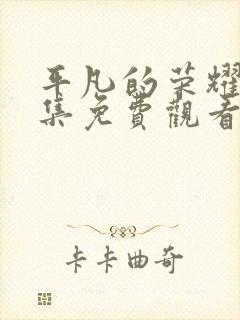 平凡的荣耀
集免費觀看
卡卡曲奇